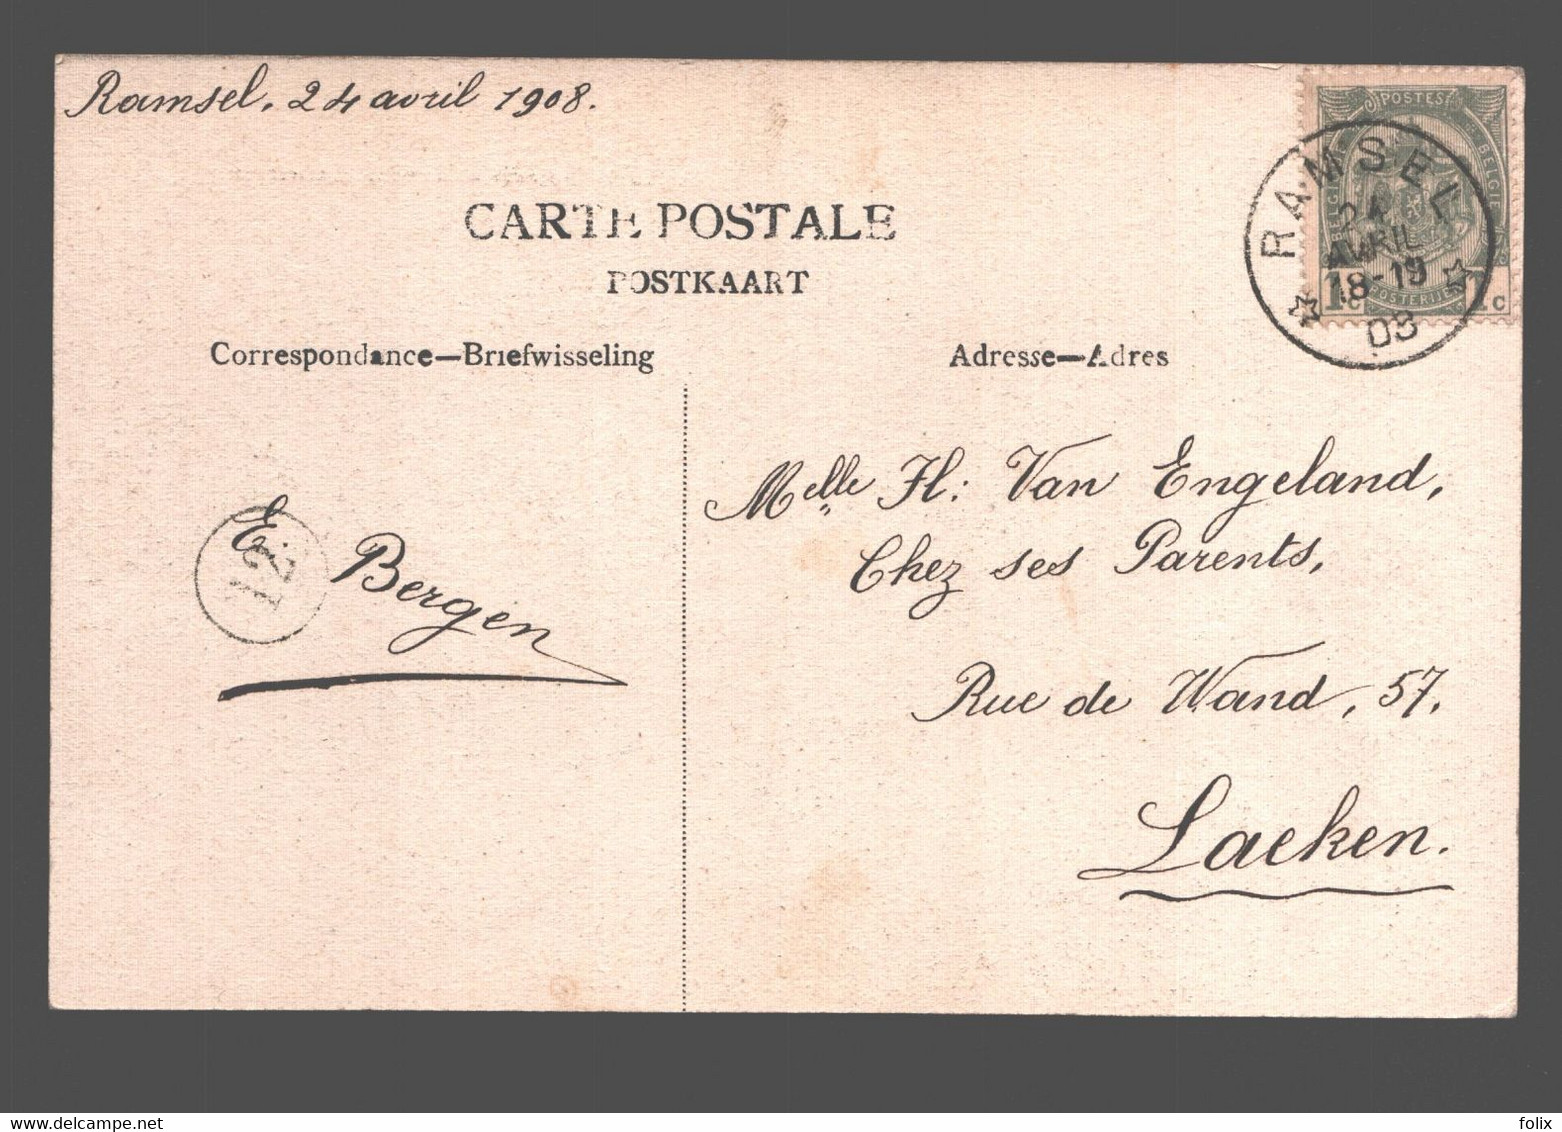 Ramsel, 24 avril 1908.
POSTES
BELGIE
BELGIQUE
POSTERIJEN
1c
1c
RAMSEL
24
AVRIL
18-19
08
CARTE POSTALE
POSTKAART
Correspondance—Briefwisseling
Adresse—Adres
Melle H: Van Engeland,
Chez ses Parents,
Rue de Wand, 57.
Laeken.
E. Bergen
12
felix